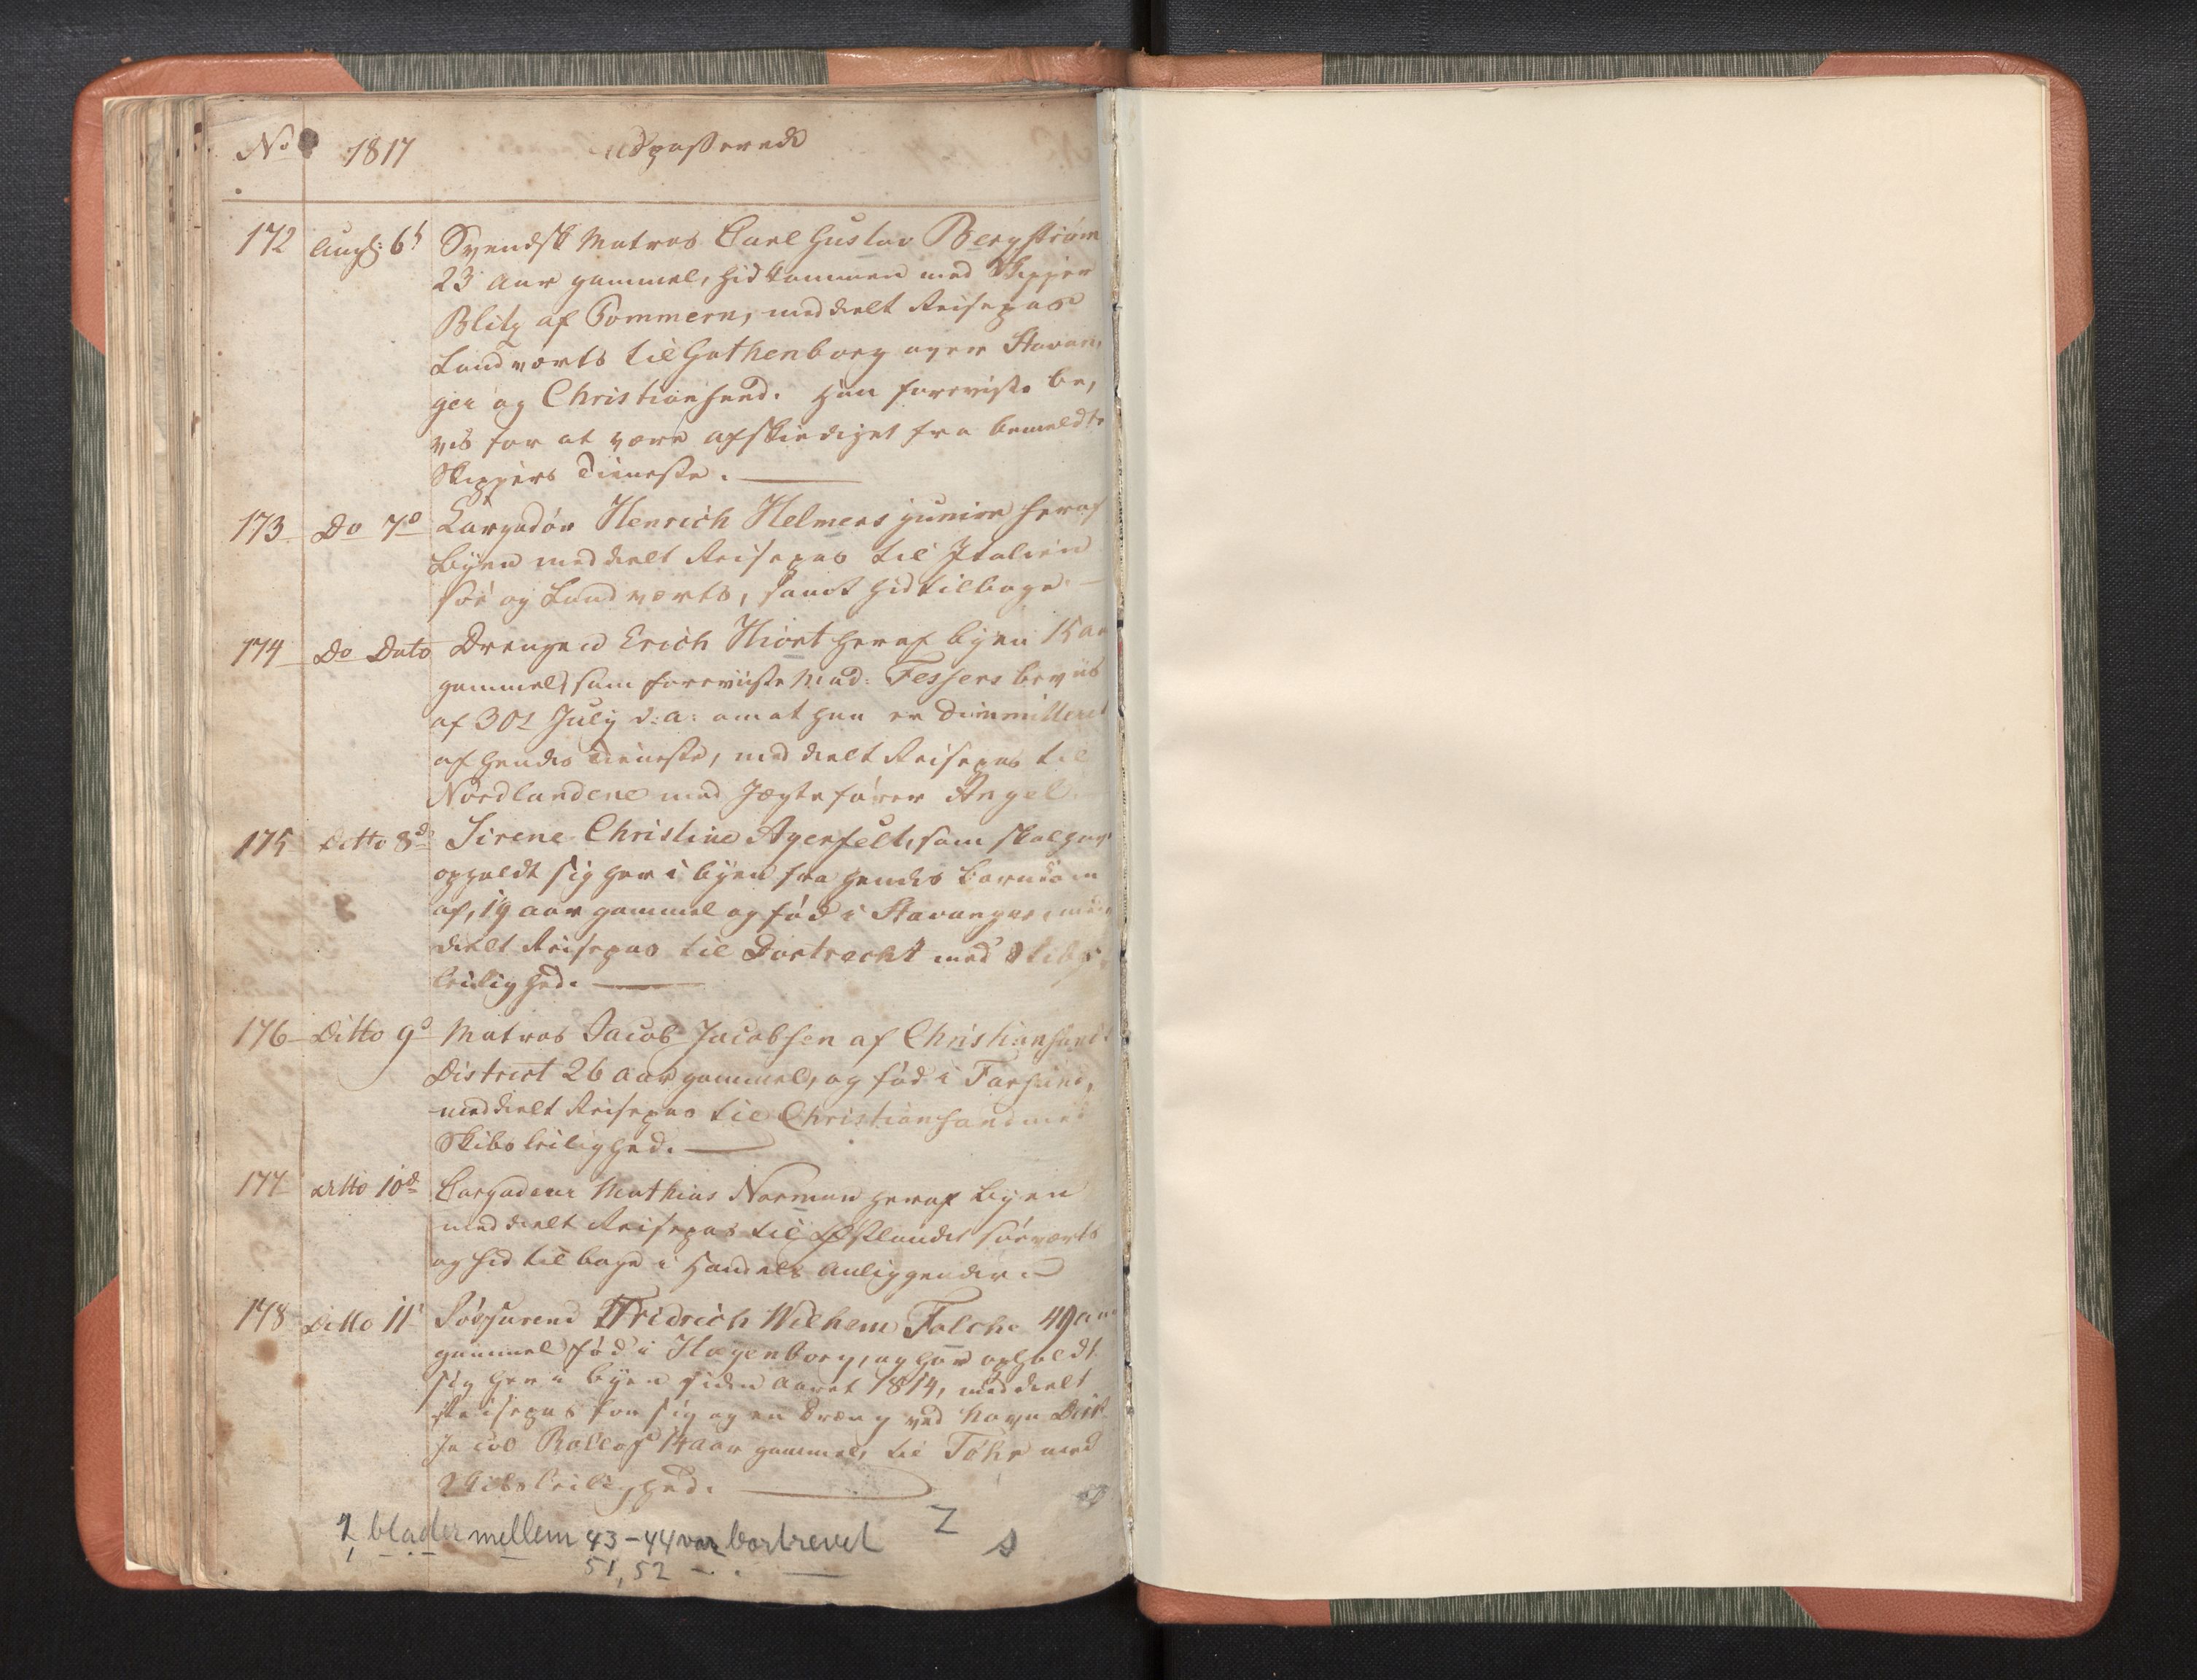 No 1817 udpasserede
172 Augs: 6t Svendsk Matros Carl Gustav Bergstrøm
23 Aar gammel, hidkommen med Skipper
Blitz af Pommern, meddeelt Reisepas
Landværts til Gothenborg over Stavan,
ger og Christiansand. Han foreviste be,
vis for at være afskediget fra bemeldte
Skippers Tieneste.
173 Do 7de Cargadør Henrich Helmers junior heraf
Byen meddeelt Reisepas til Italien
søe og Landværts, samt hid tilbage
174 Do Dato Drengen Erich Hiort heraf byen 15 aar
gammel, som foreviiste Mad: Fessers beviis
af 30t July d: a: om at han er dimmitteret
af hendes Tieneste, meddeelt Reisepas til
Nordlandene med Jægtefører Angel
175 Ditto 8de Sirene Christine Agerfelt, som skal have
opholdt sig her i byen fra hendes Barndom
af, 19 aar gammel og fød i Stavanger, med
deelt Reisepas til Dortrecht med Skibs
leilighed.
176 Ditto 9de Matros Jacob Jacobsen af Christiansands
District 26 aar gammel, og fød i Farsund,
meddeelt Reisepas til Christiansand med
Skibsleilighed.
177 ditto 10de Cargadeur Mathias Norman heraf Byen
meddeelt Reisepas til Østlandet søeværts
og hid tilbage i Handels Anliggender
178 Ditto 11t Søefarend Fridrich Wilhem Folche 49 aar
gammel fød i Hagenborg, og har opholdt
sig her i byen siden aaret 1814, meddeelt
Reisepas for sig og en Dreng ved Navn
Rolof 14 aar gammel, til Føhr med
Skibsleilighed.
2 blader mellem 43-44 var bortrevet
51, 52 - . -